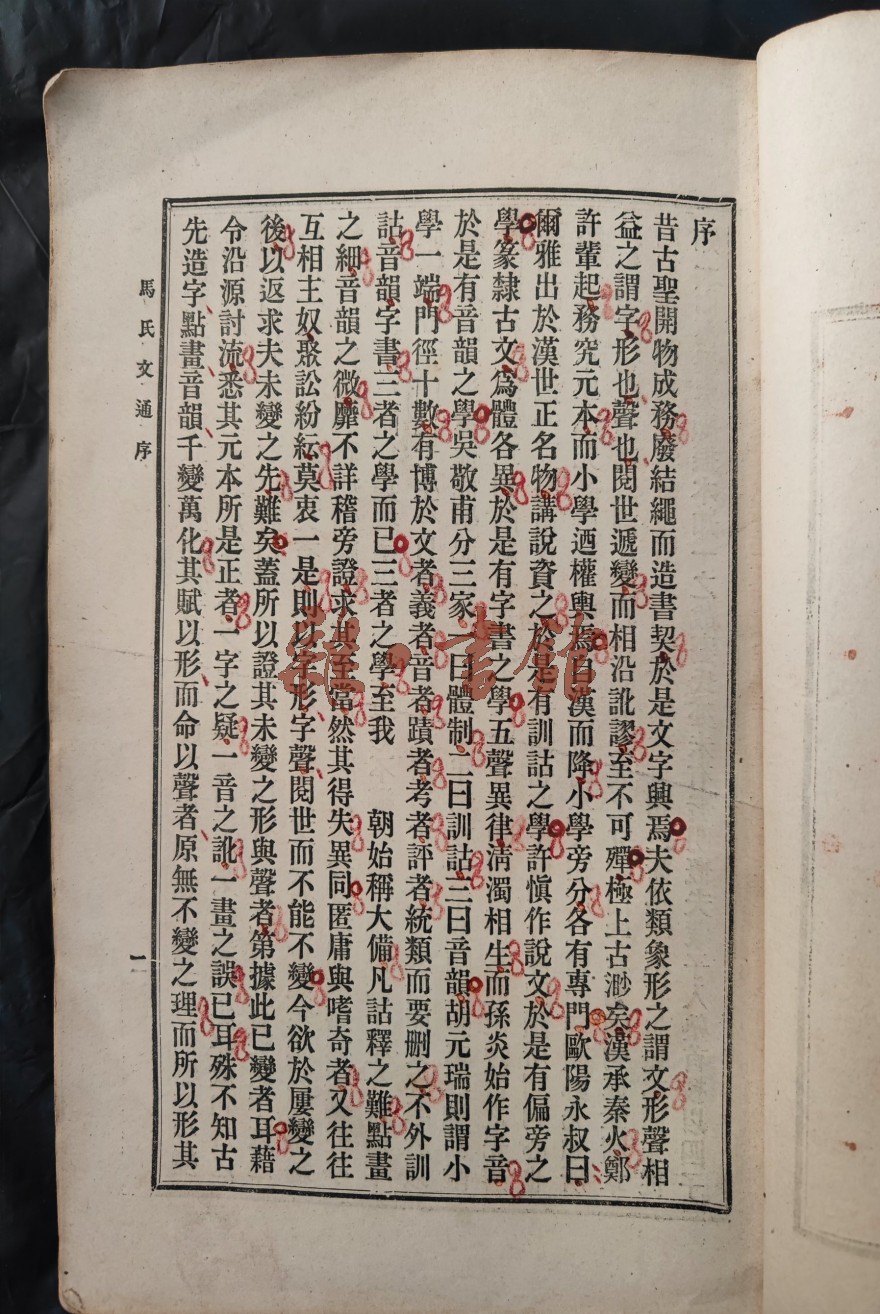 序
昔古聖開物成務廢結繩而造書契於是文字興焉夫依類象形之謂文形聲相
益之謂字形也聲也閱世遞變而相沿訛謬至不可殫極上古渺矣漢承秦火鄭
許輩起務究元本而小學迺權輿焉自漢而降小學旁分各有專門歐陽永叔曰
爾雅出於漢世正名物講說資之於是有訓詁之學許愼作說文於是有偏旁之
學篆隸古文爲體各異於是有字書之學五聲異律淸濁相生而孫炎始作字音
於是有音韻之學吳敬甫分三家一曰體制二曰訓詁三曰音韻胡元瑞則謂小
學一端門徑十數有博於文者義者音者蹟者考者評者統類而要刪之不外訓
詁音韻字書三者之學而已三者之學至我　朝始稱大備凡詁釋之難點畫
之細音韻之微靡不詳稽旁證求其至當然其得失異同匿庸與嗜奇者又往往
互相主奴聚訟紛紜莫衷一是則以字形字聲閱世而不能不變今欲於屢變之
後以返求夫未變之先難矣蓋所以證其未變之形與聲者第據此已變者耳藉
令沿源討流悉其元本所是正者一字之疑一音之訛一畫之誤已耳殊不知古
先造字點畫音韻千變萬化其賦以形而命以聲者原無不變之理而所以形其
馬氏文通序
一
雜·書館